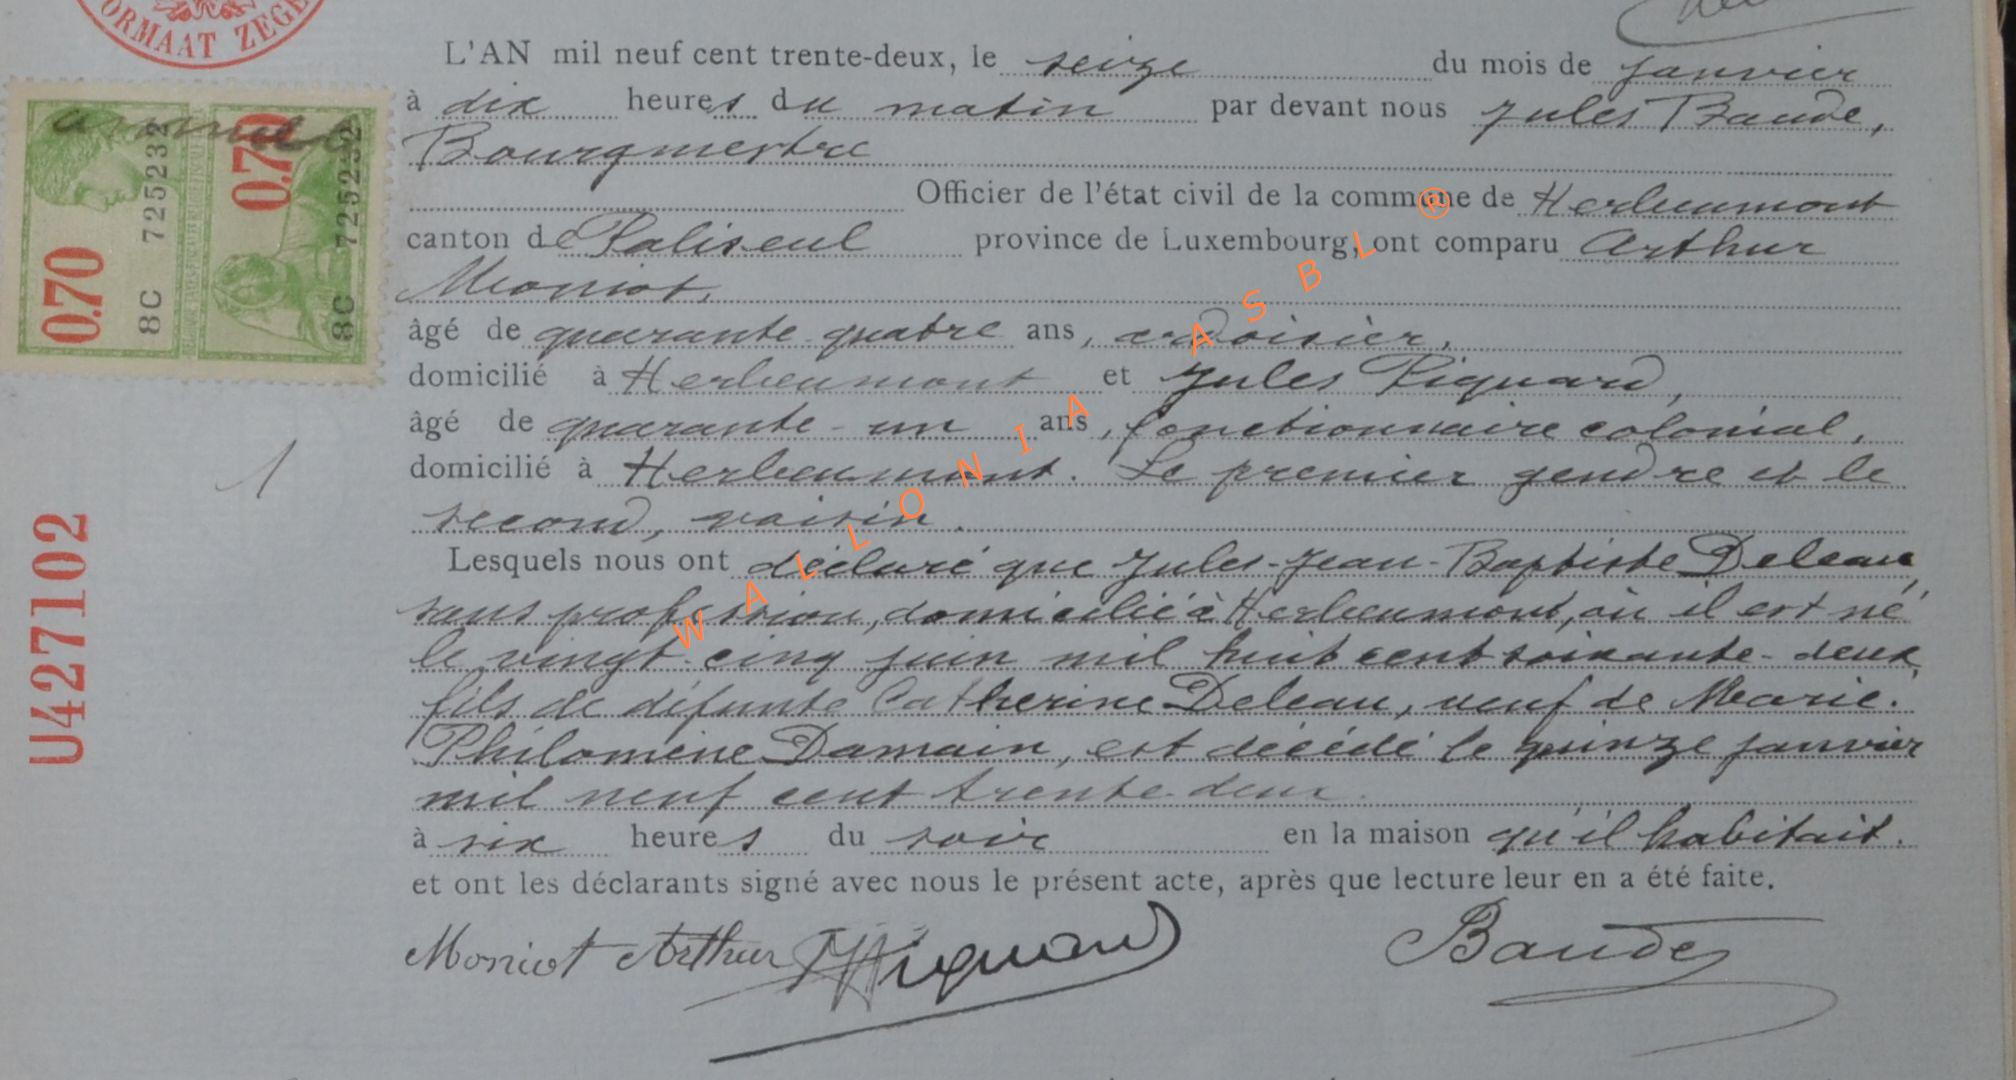 ORMAAT ZEGE
L'AN mil neuf cent trente-deux, le seize du mois de janvier
à dix heures du matin par devant nous Jules Baude,
Bourgmestre
Officier de l'état civil de la commune de Herbeumont
canton de Paliseul province de Luxembourg, ont comparu Arthur
Moniot,
âgé de quarante-quatre ans, ardoisier,
domicilié à Herbeumont et Jules Piquard,
âgé de quarante-un ans, fonctionnaire colonial,
domicilié à Herbeumont. Le premier gendre et le
second, voisin.
Lesquels nous ont déclaré que Jules-Jean-Baptiste Deleau,
sans profession, domicilié à Herbeumont, où il est né
le vingt-cinq juin mil huit cent soixante-deux
fils de défunte Catherine Deleau, veuf de Marie-
Philomène Damain, est décédé le quinze janvier
mil neuf cent trente-deux.
à six heures du soir en la maison qu'il habitait.
et ont les déclarants signé avec nous le présent acte, après que lecture leur en a été faite.
Moniot Arthur Piquard Baude
0.70
8C 725232
0.70
8C 725232
1
U427102
WALLONIA ASBL ®